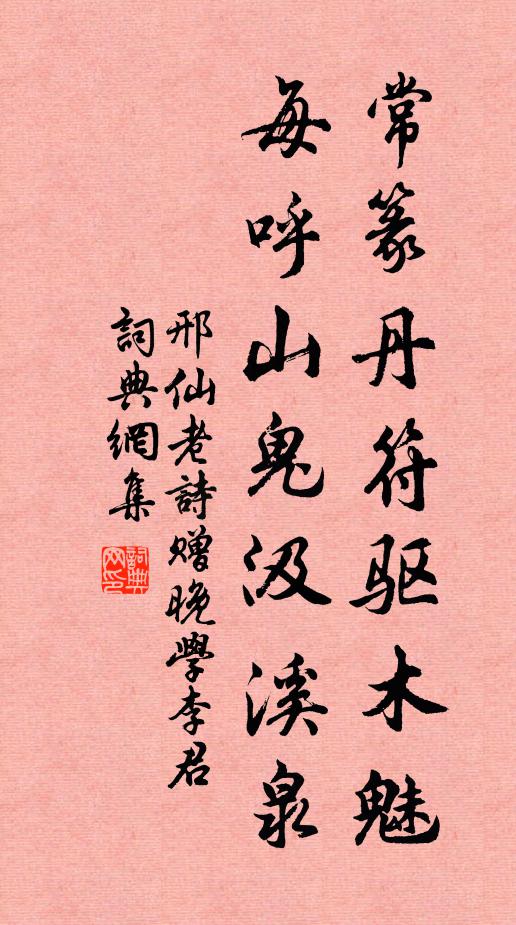 常篆丹符驱木魅
每呼山鬼汲溪泉
邢仙老詩赠晚學李君
詞典網集
詞典
网印